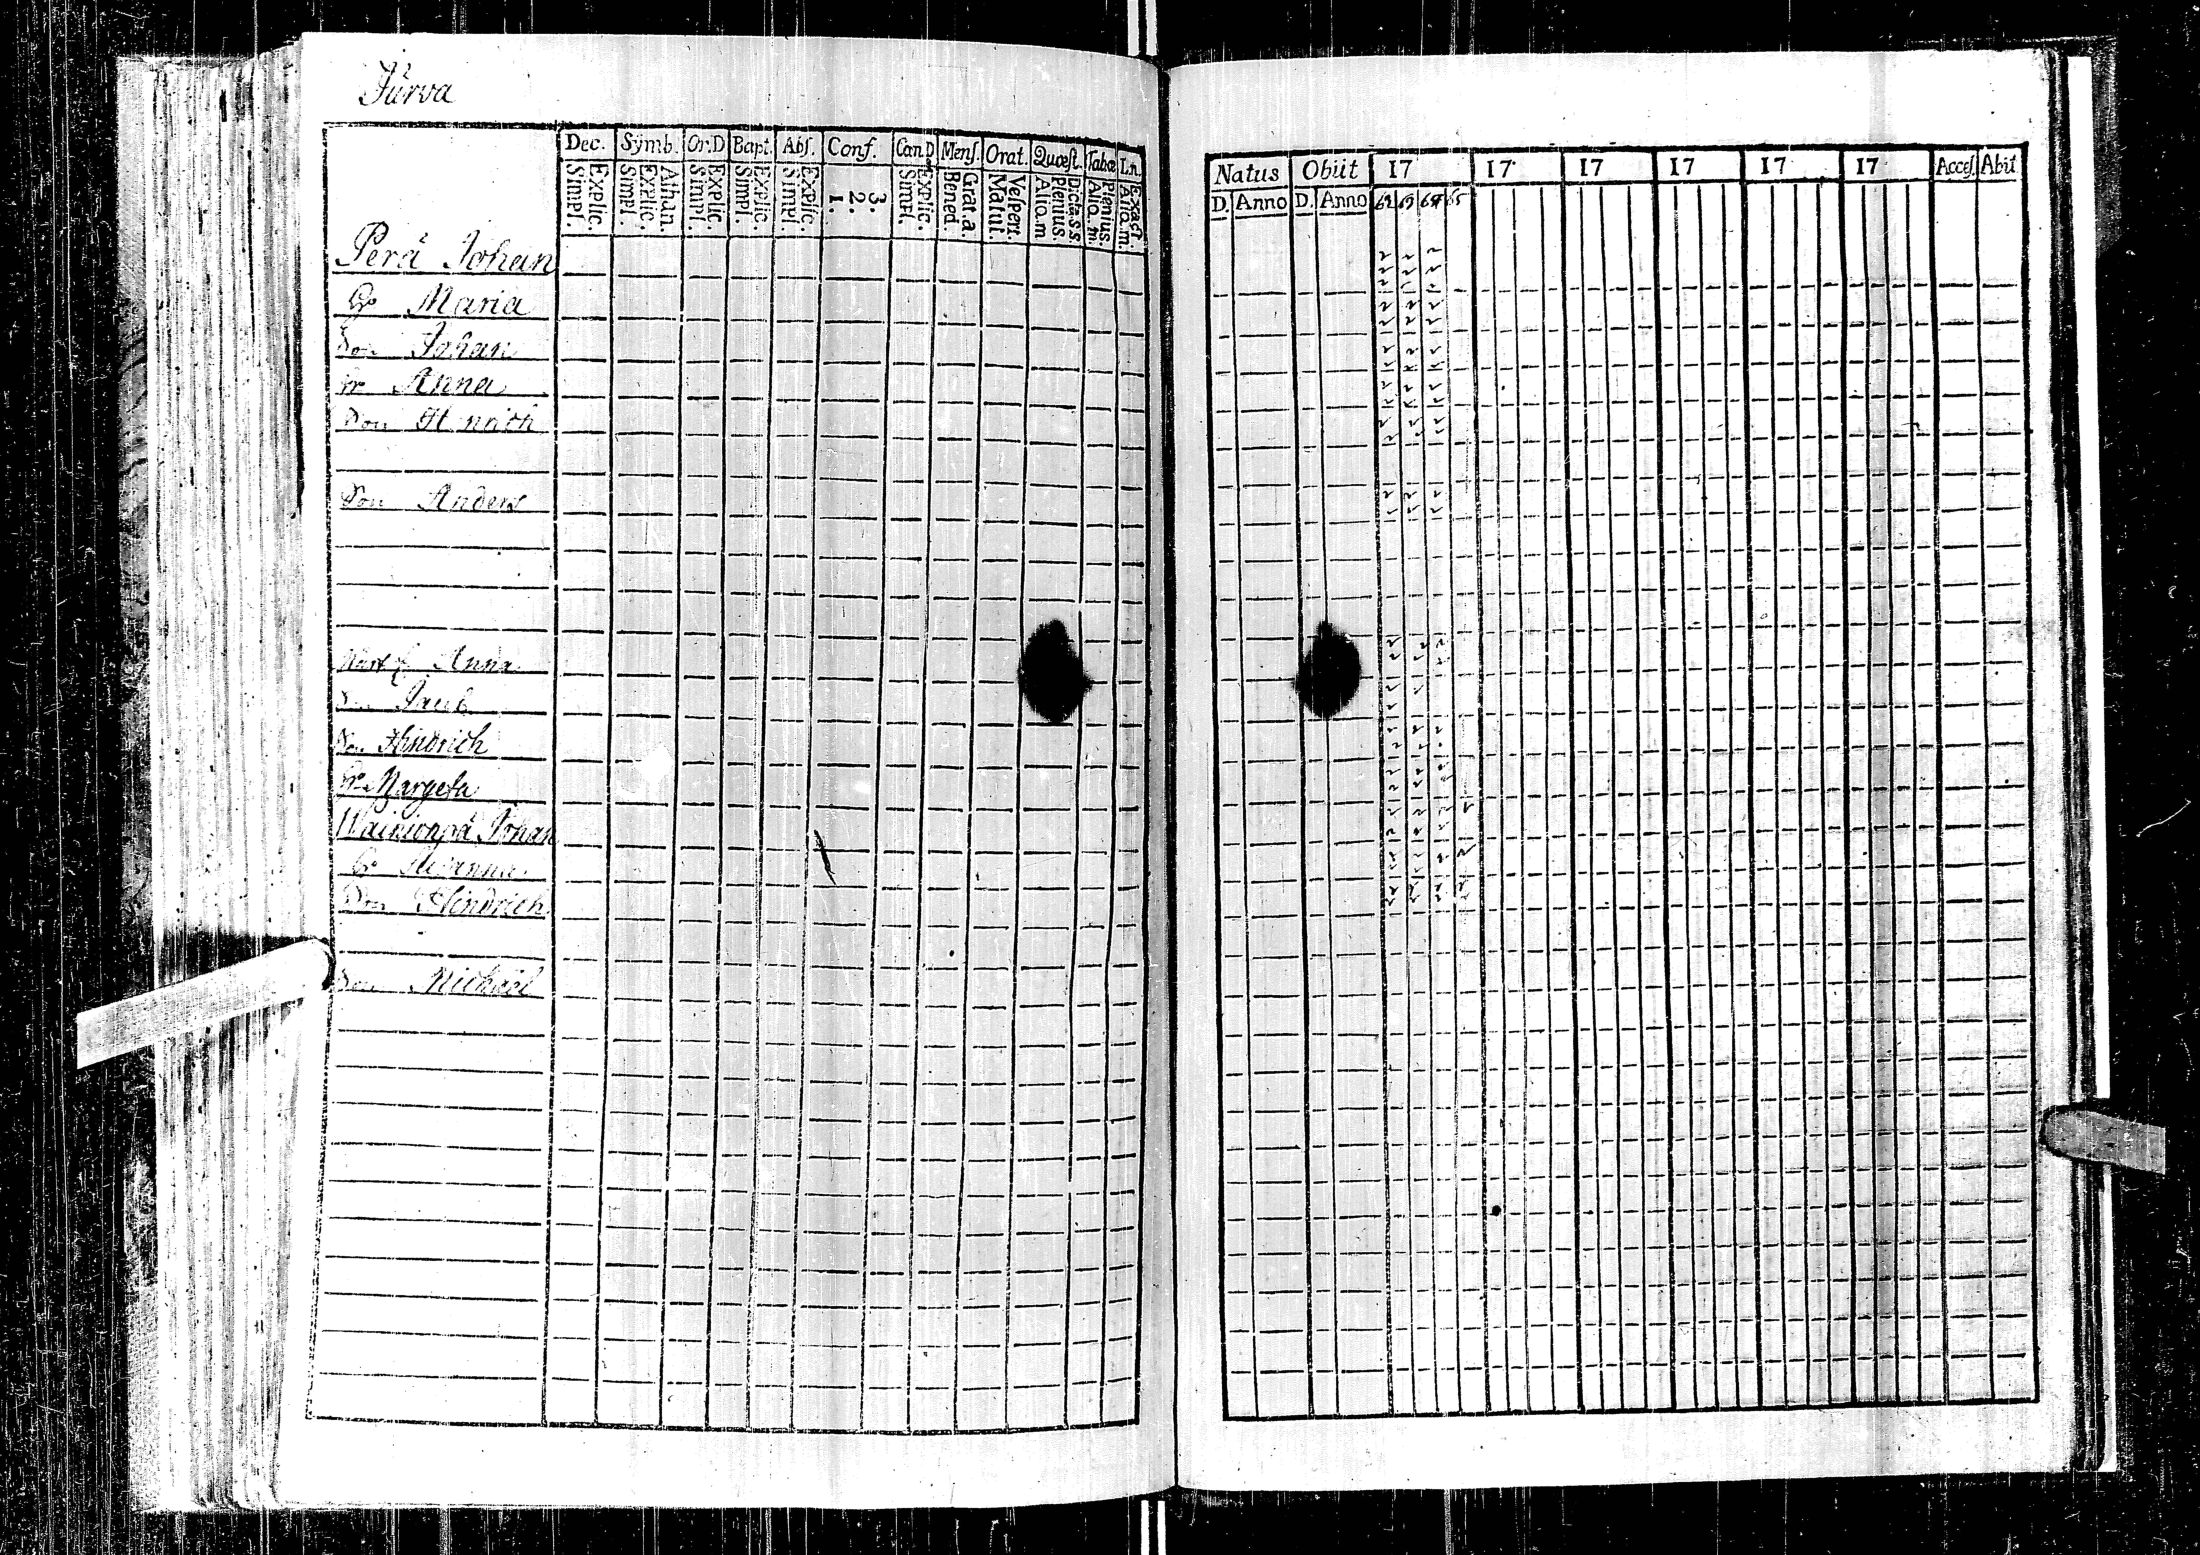 Jurva
Dec. Symb. Or.D Bapt. Abs. Conf. Can.D Mens. Orat. Quæst. Tabæ I.n.
Explic. Simpl. Athan. Explic. Simpl. Explic. Simpl. Explic. Simpl. Explic. Simpl. 3. 2. 1. Explic. Simpl. Grat.a. Bened. Vesperi. Matut. Dict.s.s. Plenius. Aliq.m Plenius. Aliq.m. Exact. Aliq.m.
Perä Johan
hr Maria
Son Johan
hr Anna
Son Hinrich
Son Anders
Anna
Jacob
Son Hindrich
hr Margeta
Johan
hr Susanna
Son Hindrich
Son Michael
Natus Obiit 17 17 17 17 17 17 Acces. Abit
D. Anno D. Anno 62 63 64 65